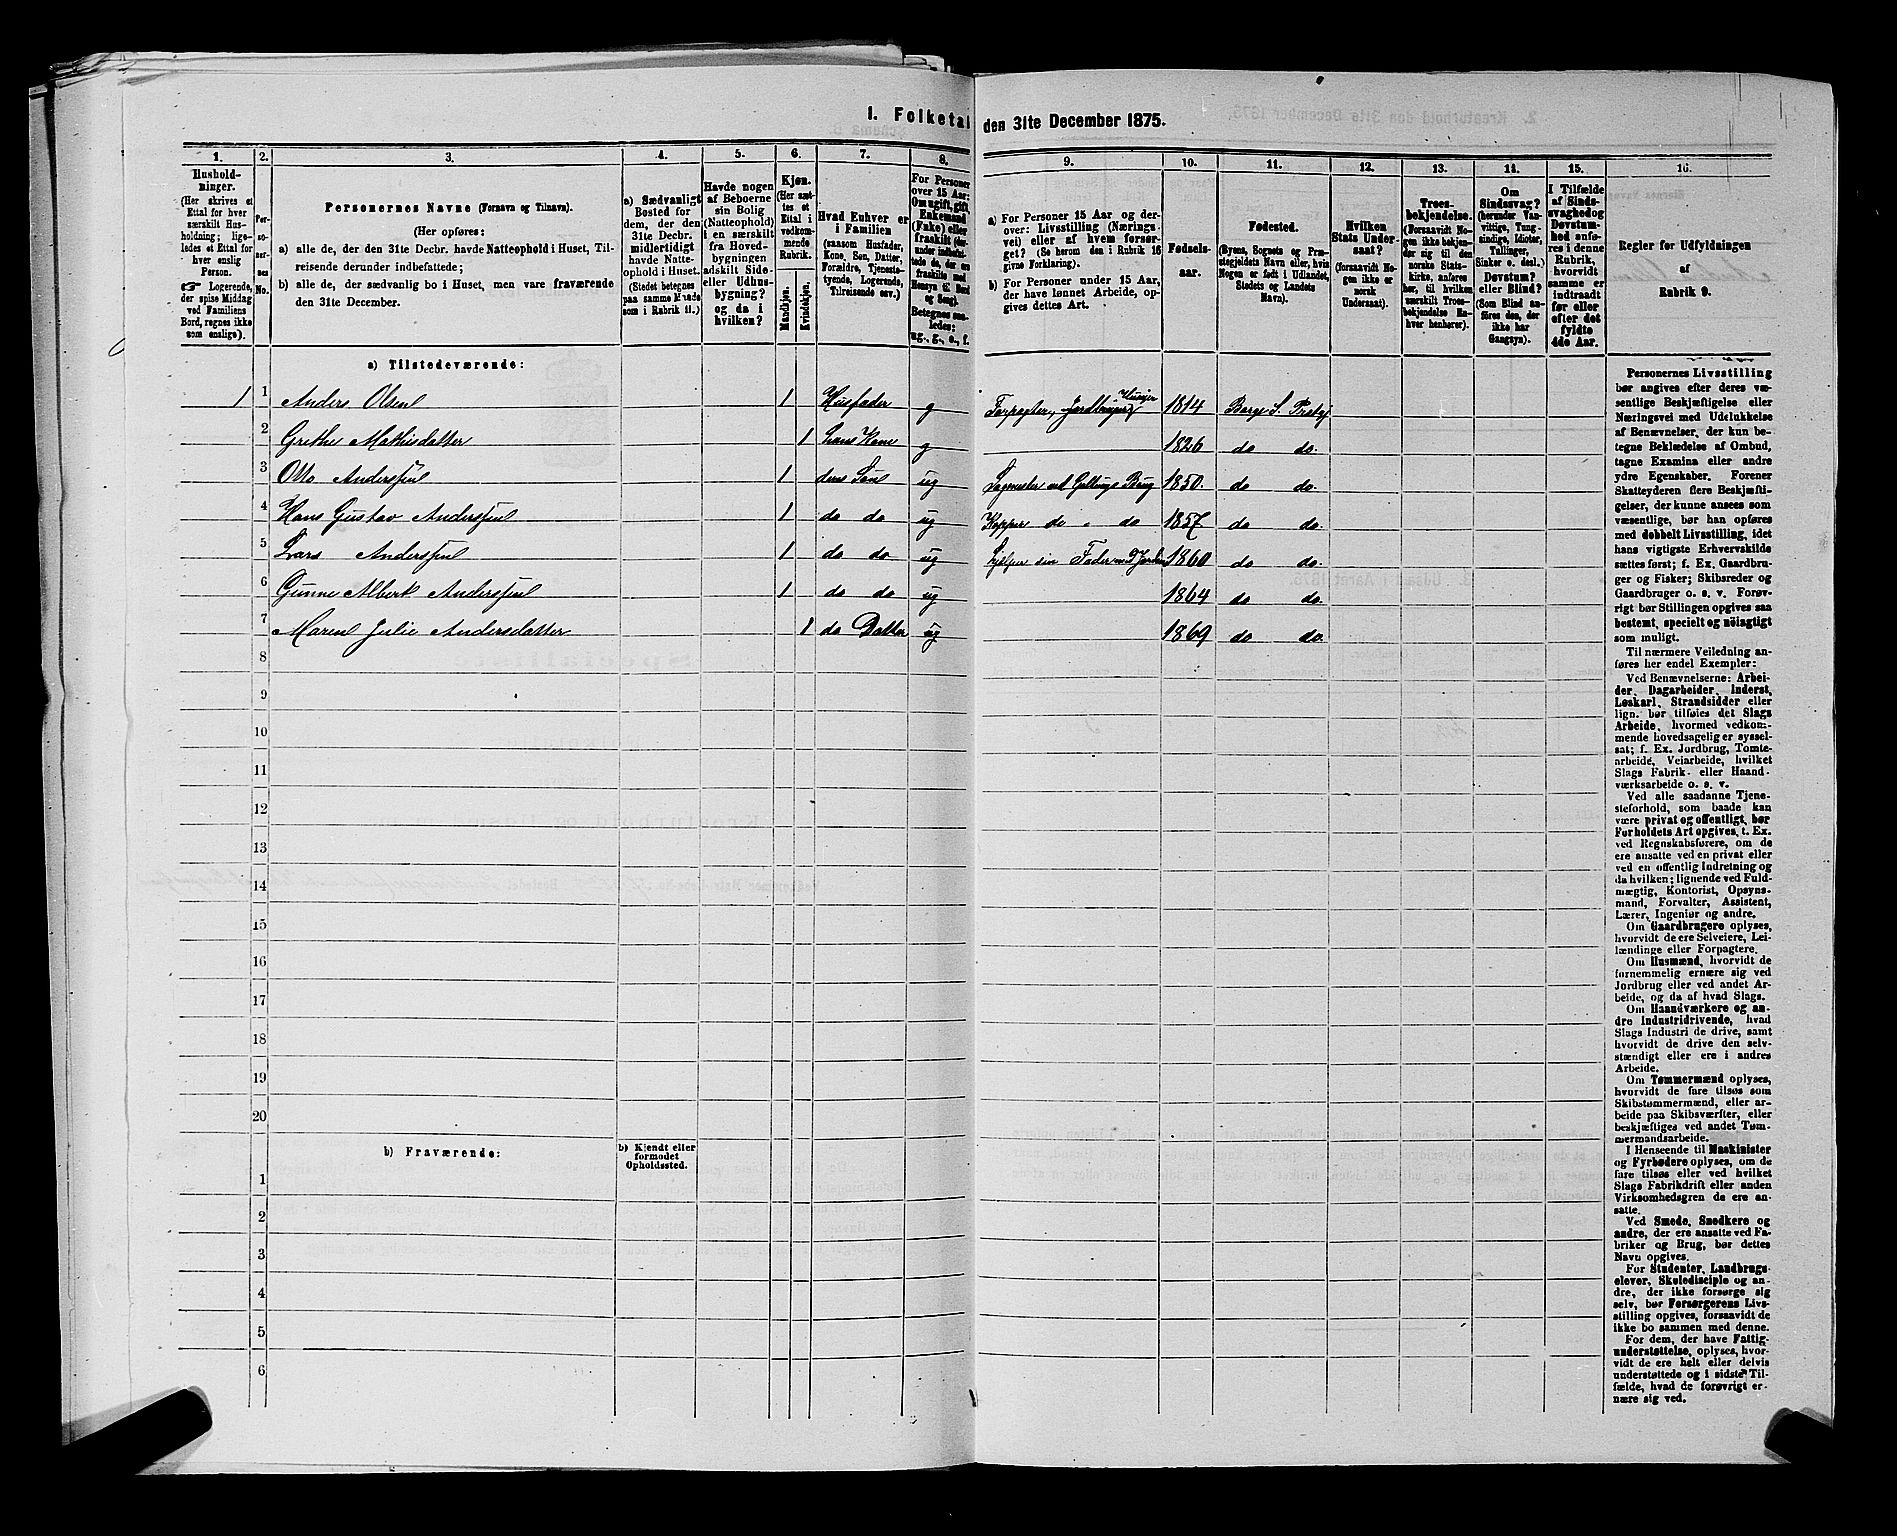 1. Folketal den 31te December 1875.
1. 2. 3. 4. 5. 6. 7. 8. 9. 10. 11. 12. 13. 14. 15. 16.
Hushold-
ninger.
(Her skrives et
Ettal for hver
særskilt Hus-
holdning; lige-
ledes et Ettal for
hver enslig
Person.
☞ Logerende,
der spise Middag
ved Familiens
Bord, regnes ikke
som enslige).
Per-
so-
ner-
nes
No.
Personernes Navne (Fornavn og Tilnavn).
(Her opføres:
a) alle de, der den 31te Decbr. havde Natteophold i Huset, Til-
reisende derunder indbefattede;
b) alle de, der sædvanlig bo i Huset, men vare fraværende
den 31te December.
a) Sædvanligt
Bosted for
dem, der den
31te Decbr.
midlertidigt
havde Natte-
ophold i Huset.
(Stedet betegnes
paa samme Maade
som i Rubrik 11.)
Havde nogen
af Beboerne
sin Bolig
(Natteophold)
i en særskilt
fra Hoved-
bygningen
adskilt Side-
eller Udhus-
bygning?
og da i
hvilken?
Kjøn.
(Her sæt-
tes et
Ettal i
vedkom-
mende
Rubrik.
Mandkjøn.
Kvindekjøn.
Hvad Enhver er
i Familien
(saasom Husfader,
Kone, Søn, Datter,
Forældre, Tjeneste-
tyende, Logerende,
Tilreisende osv.)
For Personer
over 15 Aar:
Om ugift, gift,
Enkemand
(Enke) eller
fraskilt
Betegnes saa-
ledes:
ug., g., e., f.
a) For Personer 15 Aar og der-
over: Livsstilling (Nærings-
vei) eller af hvem forsør-
get? (Se herom den i Rubrik 16
givne Forklaring).
b) For Personer under 15 Aar,
der have lønnet Arbeide, op-
gives dettes Art.
Fødsels-
aar.
Fødested.
(Byens, Sognets og Præ-
stegjeldets Navn eller, hvis
Nogen er født i Udlandet,
Stedets og Landets
Navn).
Hvilken
Stats Under-
saat?
(forsaavidt No-
gen ikke er
norsk
Undersaat).
Troes-
bekjendelse.
(Forsaavidt No-
gen ikke bekjen-
der sig til den
norske Stats-
kirke, anføres
her, til hvilken
særskilt Troes-
bekjendelse En-
hver henhører).
Om
Sindssvag?
(herunder Van-
vittige, Tung-
sindige, Idioter,
Tullinger,
Sinker o. desl.).
Døvstum?
eller Blind?
(Som Blind an-
føres den, der
ikke har
Gangsyn).
I Tilfælde
af Sinds-
svaghed og
Døvstum-
hed anfø-
res i denne
Rubrik,
hvorvidt
samme er
indtraadt
før eller
efter det
fyldte
4de Aar.
Regler for Udfyldningen
af
Rubrik 9.
a) Tilstedeværende:
1 1 Anders Olsen 1 Husfader g Forpagter, Jordbruger Husejer 1814 Borge S. Prstgj
2 Grethe Mathisdatter 1 hans Kone g 1826 do do.
3 Otto Andersen 1 deres Søn ug Sagmester ved Gellungs Brug 1850. do do.
4 Hans Gustav Andersen 1 do do ug do " do 1857 do do.
5 Lars Andersen 1 do do ug hjelper sin Fader med Jorden 1860 do do.
6 Gunne Albert Andersen 1 do do ug 1864 do do.
7 Maren Julie Andersdatter 1 do Datter ug 1869 do do.
8
9
10
11
12
13
14
15
16
17
18
19
20
b) Fraværende:
b) Kjendt eller
formodet
Opholdssted.
1
2
3
4
5
6
Personernes Livsstilling
bør angives efter deres væ-
sentlige Beskjæftigelse eller
Næringsvei med Udelukkelse
af Benævnelser, der kun be-
tegne Beklædelse af Ombud,
tagne Examina eller andre
ydre Egenskaber. Forener
Skatteyderen flere Beskjæfti-
gelser, der kunne ansees som
væsentlige, bør han opføres
med dobbelt Livsstilling, idet
hans vigtigste Erhvervskilde
sættes først; f. Ex. Gaardbru-
ger og Fisker; Skibsreder og
Gaardbruger o. s. v. Forøv-
rigt bør Stillingen opgives saa
bestemt, specielt og nöiagtigt
som muligt.
Til nærmere Veiledning an-
føres her endel Exempler:
Ved Benævnelserne: Arbei-
der, Dagarbeider, Inderst,
Løskarl, Strandsidder eller
lign. bør tilføies det Slags
Arbeide, hvormed vedkom-
mende hovedsagelig er syssel-
sat; f. Ex. Jordbrug, Tomte-
arbeide, Veiarbeide, hvilket
Slags Fabrik- eller Haand-
værksarbeide o. s. v.
Ved alle saadanne Tjene-
steforhold, som baade kan
være privat og offentligt, bør
Forholdets Art opgives, t. Ex.
ved Regnskabsførere, om de
ere ansatte ved en privat eller
ved en offentlig Indretning og
da hvilken; lignende ved Fuld-
mægtig, Kontorist, Opsyns-
mand, Forvalter, Assistent,
Lærer, Ingeniør og andre.
Om Gaardbrugere oplyses,
hvorvidt de ere Selveiere, Lei-
lændinge eller Forpagtere.
Om Husmænd, hvorvidt de
fornemmelig ernære sig ved
Jordbrug eller ved andet Ar-
beide, og da af hvad Slags.
Om Haandværkere og an-
dre industridrivende, hvad
Slags Industri de drive, samt
hvorvidt de drive den selv-
stændigt eller ere i andres
Arbeide.
Om Tømmermænd oplyses,
hvorvidt de fare tilsøs som
Skibstømmermænd, eller ar-
beide paa Skibsværfter, eller
beskjæftiges ved andet Tøm-
mermandsarbeide.
I Henseende til Maskinister
og Fyrbødere oplyses, om de
fare tilsøs eller ved hvilket
Slags Fabrikdrift eller anden
Virksomhedsgren de ere an-
satte.
Ved Smede, Snedkere og
andre, der ere ansatte ved Fa-
briker og Brug, bør dettes
Navn opgives.
For Studenter, Landbrugs-
elever, Skoledisciple og an-
dre, der ikke forsørge sig
selv, bør Forsørgerens Livs-
stilling opgives, forsaavidt de
ikke bo sammen med denne.
For dem, der have Fattig-
understøttelse, oplyses, hvor-
vidt de ere helt eller delvis
understøttede og i sidste Til-
fælde, hvad de forøvrigt er-
nære sig ved.